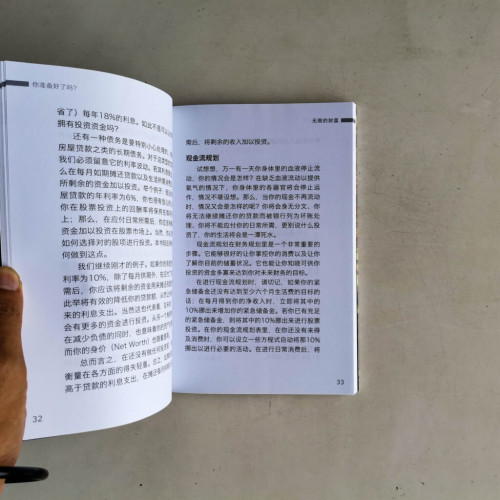 你准备好了吗?
省了）每年18%的利息。如此不是可以
拥有投资资金吗？
还有一种债务是要特别小心处理的，
房屋贷款之类的长期债务。对于这类型
我们必须留意它的利率波动。若其利率
么在每月如期摊还贷款以及生活所需后
所剩余的资金加以投资。举个例子，
屋贷款的年利率为6%，你也懂得
你在股票投资上的回酬率将保持在
上；那么，在应付日常所需后，你应
资金加以投资在股票市场上。当然
如何选择对的股项进行投资。本书
何做到这点。
我们继续刚才的例子。如果你的
利率为10%，除了每月供期外，在
需后，你应该将剩余的资金
此举将有效的降低你的贷款额
来的利息支出。当然这也代表着，
会有更多的资金进行投资。从另一个
在减少负债的同时，也意味着你的
而你的身价（Net Worth）也跟着
总而言之，在还没有做出
衡量在各方面的得失轻重。总之，
高于贷款的利息支出，在摊还每月
32
无痛的财富
需后，将剩余的收入加以投资。
现金流规划
试想想，万一有一天你身体里的血液停止流
动，你的情况会是怎样？在缺乏血液流动以提供
氧气的情况下，你身体里的各器官将会停止运
作，情况不堪设想。那么，当你的现金不再流动
时，情况又会是怎样的呢？你将会身无分文，你
将无法继续摊还你的贷款而被银行列为坏账处
理，你将不能应付你的日常所需，更别说什么投
资了，你的生活将会是一潭死水。
现金流规划在财务规划里是一个非常重要的
步骤。它能够很好的让你掌控你的消费以及让你
了解你目前的储蓄状况。它也能让你知晓可供你
投资的资金多寡来达到你对未来财务的目标。
在进行现金流规划时，请切记，如果你的紧
急储备金还没有达到至少六个月生活费的目标的
话；在每月得到你的净收入时，立即将其中的
10%挪出来增加你的紧急储备金。若你已有充足
的紧急储备金，则将其中的10%挪出来进行股票
投资。在你的现金流规划表里，在你还没有来得
及消费时，你可以设立一些方程式自动将那10%
挪出以进行必要的活动。在进行日常消费后，将
33